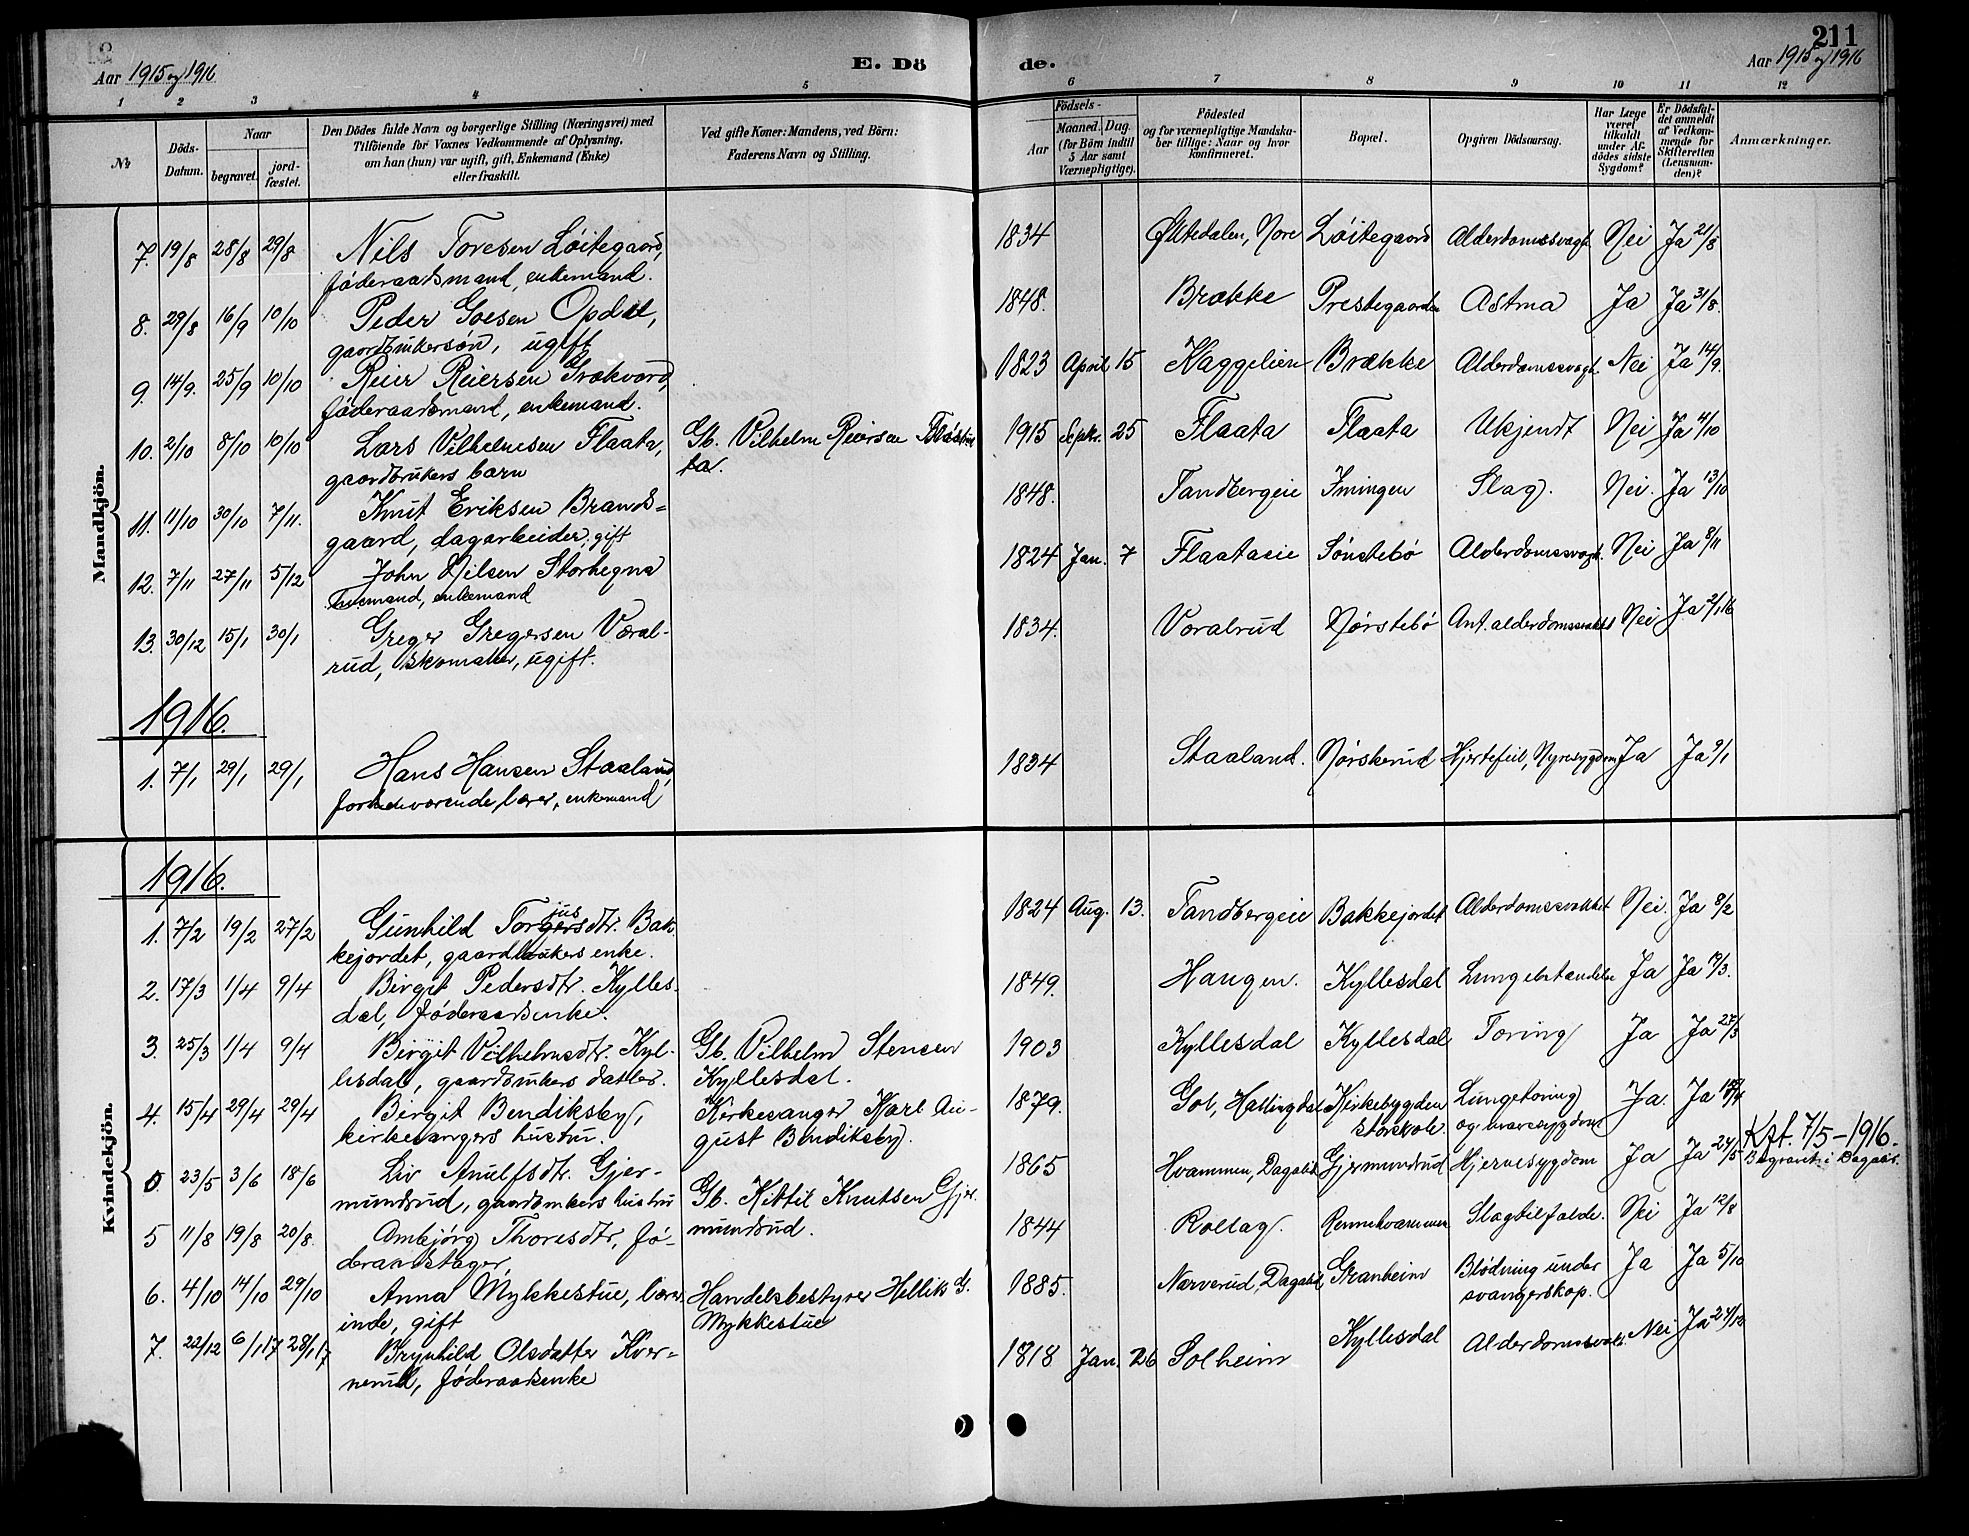 211
Aar 1915 og 1916
E. Dö
de.
Aar 1915 og 1916
1 2 3 4 5 6 7 8 9 10 11 12
№
Döds-
Datum.
Naar
begravet.
jord-
fæstet.
Den Dödes fulde Navn og borgerlige Stilling (Næringsvei) med
Tilföiende for Voxnes Vedkommende af Oplysning,
om han (hun) var ugift, gift, Enkemand (Enke)
eller fraskilt.
Ved gifte Koner: Mandens, ved Börn:
Faderens Navn og Stilling.
Födsels-
Aar
Maaned. Dag.
(for Börn indtil
5 Aar samt
Værnepligtige).
Födested
og for værnepligtige Mandska-
ber tillige: Naar og hvor
konfirmeret.
Bopæl.
Opgiven Dödsaarsag.
Har Læge
været
tilkaldt
under Af-
dödes sidste
Sygdom?
Er Dödsfal-
det anmeldt
af Vedkom-
mende for
Skifteretten
(Lensman-
den)?
Anmærkninger.
Mandkjön.
7. 19/8 28/8 29/8 Nils Toresen Løitegaard, 1834 Nore Løitegaard Alderdomssvagh. Nei Ja 21/8
føderaadsmand, enkemand.
8. 29/8 16/9 10/10 Peder Goesen Opdal, 1848. Brække Prestegaarden Astma Ja Ja 31/8.
gaardbrukersøn, ugift
9. 14/9. 25/9 10/10 Reier Reiersen Grækvard, 1823 April 15 Haggelien Brække Alderdomssvagh. Nei Ja 14/9.
føderaadsmand, enkemand.
10. 2/10 8/10 10/10 Lars Vilhelmsen Flaata, Gb. Vilhelm Reiersen 1915 Septr. 25 Flaata Flaata Ukjendt Nei Ja 4/10
gaardbrukers barn ta.
11. 11/10 30/10 7/11. Knut Eriksen Brands- 1848. Tandbergeie Imingen Slag. Nei. Ja 13/10
gaard, dagarbeider, gift
12. 7/11 27/11 5/12 John Nilsen Storhegna 1824 Jan. 7 Flaataeie Sønstebø Alderdomssvagh. Nei Ja 8/11
enkemand
13. 30/12 15/1 30/1 Greger Gregersen Væral- 1834. Voralrud Nørstebø Ant. alderdomssvakhet Nei Ja 2/1 16
rud, skomaker, ugift.
1916.
1. 7/1 29/1 29/1 Hans Hansen Staaland, 1834 Staaland. Nørskerud Hjertefeil, Nyresygdom Ja Ja 9/1
forhenværende lærer, enkemand
Kvindekjön.
1916.
1. 7/2 19/2 27/2 Gunhild Torgersdtr. Bak- 1824 Aug. 13. Tandbergeie Bakkejordet Alderdomssvakhet Nei. Ja 8/2
jus
kejordet, gaardbrukers enke.
2. 17/3 1/4 9/4 Birgit Pedersdtr. Kylles- 1849. Haugen. Kyllesdal Lungebetændelse Ja Ja 19/3.
dal, føderaadsenke.
3. 25/3 1/4 9/4 Birgit Vilhelmsdtr. Kyl- Gb. Vilhelm Stensen 1903 Kyllesdal Kyllesdal Tæring Ja Ja 27/3
lesdal, gaardbrukers datter. Kyllesdal.
4. 15/4 29/4 29/4 Birgit Bendiksby, Kirkesanger Karl Au- 1879. Gol, Hallingdal Kirkebygden Lungetæring Ja. Ja
kirkesangers hustru. gust Bendiksby. storskole. og
Kft. 7/5-1916.
0. 23/5 3/6 18/6 Liv Anulfsdtr. Gjer- 1865 Hvammen, Dagalid Gjermundrud Hjernesygdom Ja Ja 24/5 Begravet i Dagali.
mundrud, gaardbrukers hustru Gb. Kittil Knutsen Gjer-
5 11/8 19/8 20/8. Ambjørg Thoresdtr, fø- mundrud. 1844 Rollag. Rennehvammen Slagtilfælde. Nei Ja 12/8
deraadstager,
6. 4/10 14/10 29/10 Anna Mykkestue, lærer- Handelsbestyrer Hellik G. 1885. Nørverud, Dagalid Granheim Blødning under Ja Ja 5/10
inde, gift Mykkestue svangerskap.
7. 22/12 6/1 17 28/1 17 Brynhild Olsdatter Kver- 1818 Jan. 26 Solheim Kyllesdal Alderdomssvakh. Nei Ja 24/12
nerud, føderaadsenke